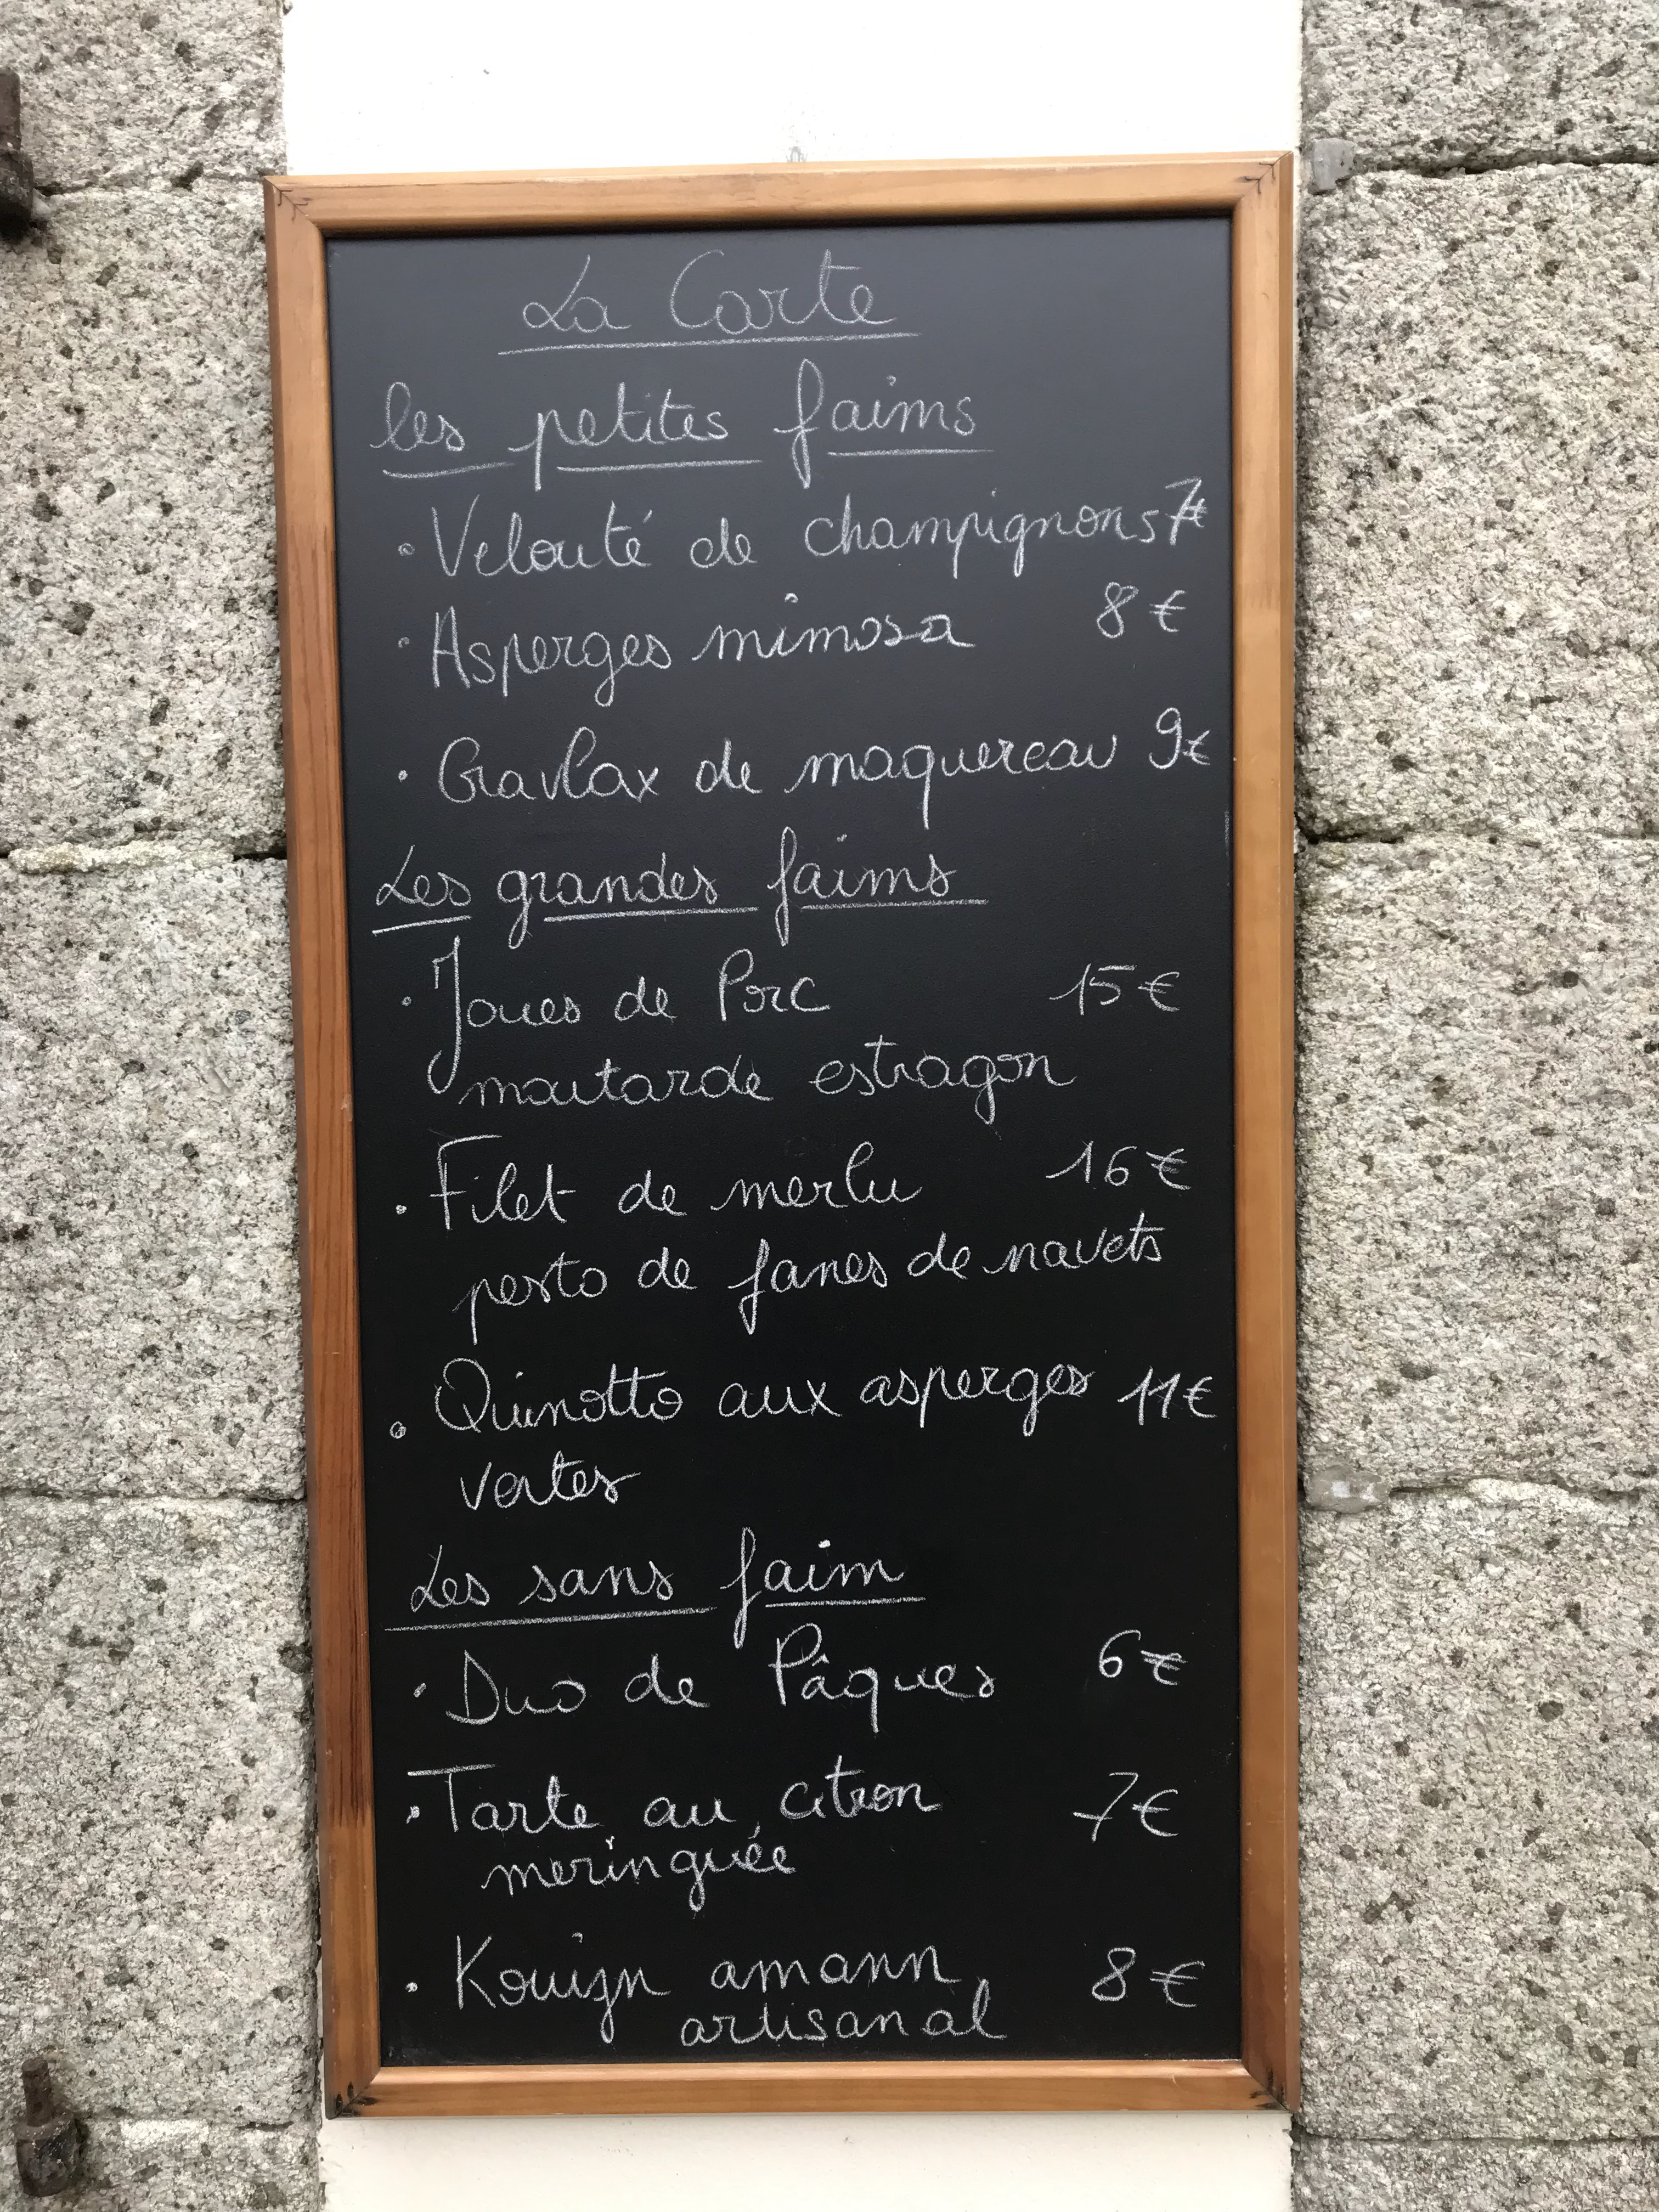 La Carte
les petites faims
• Velouté de champignons 7€
• Asperges mimosa 8€
• Gravlax de maquereau 9€
Les grandes faims
• Joues de Porc 15€
moutarde estragon
• Filet de merlu 16€
pesto de fanes de navets
• Quinotto aux asperges 11€
vertes
Les sans faim
• Duo de Pâques 6€
• Tarte au citron 7€
meringuée
• Kouign amann 8€
artisanal